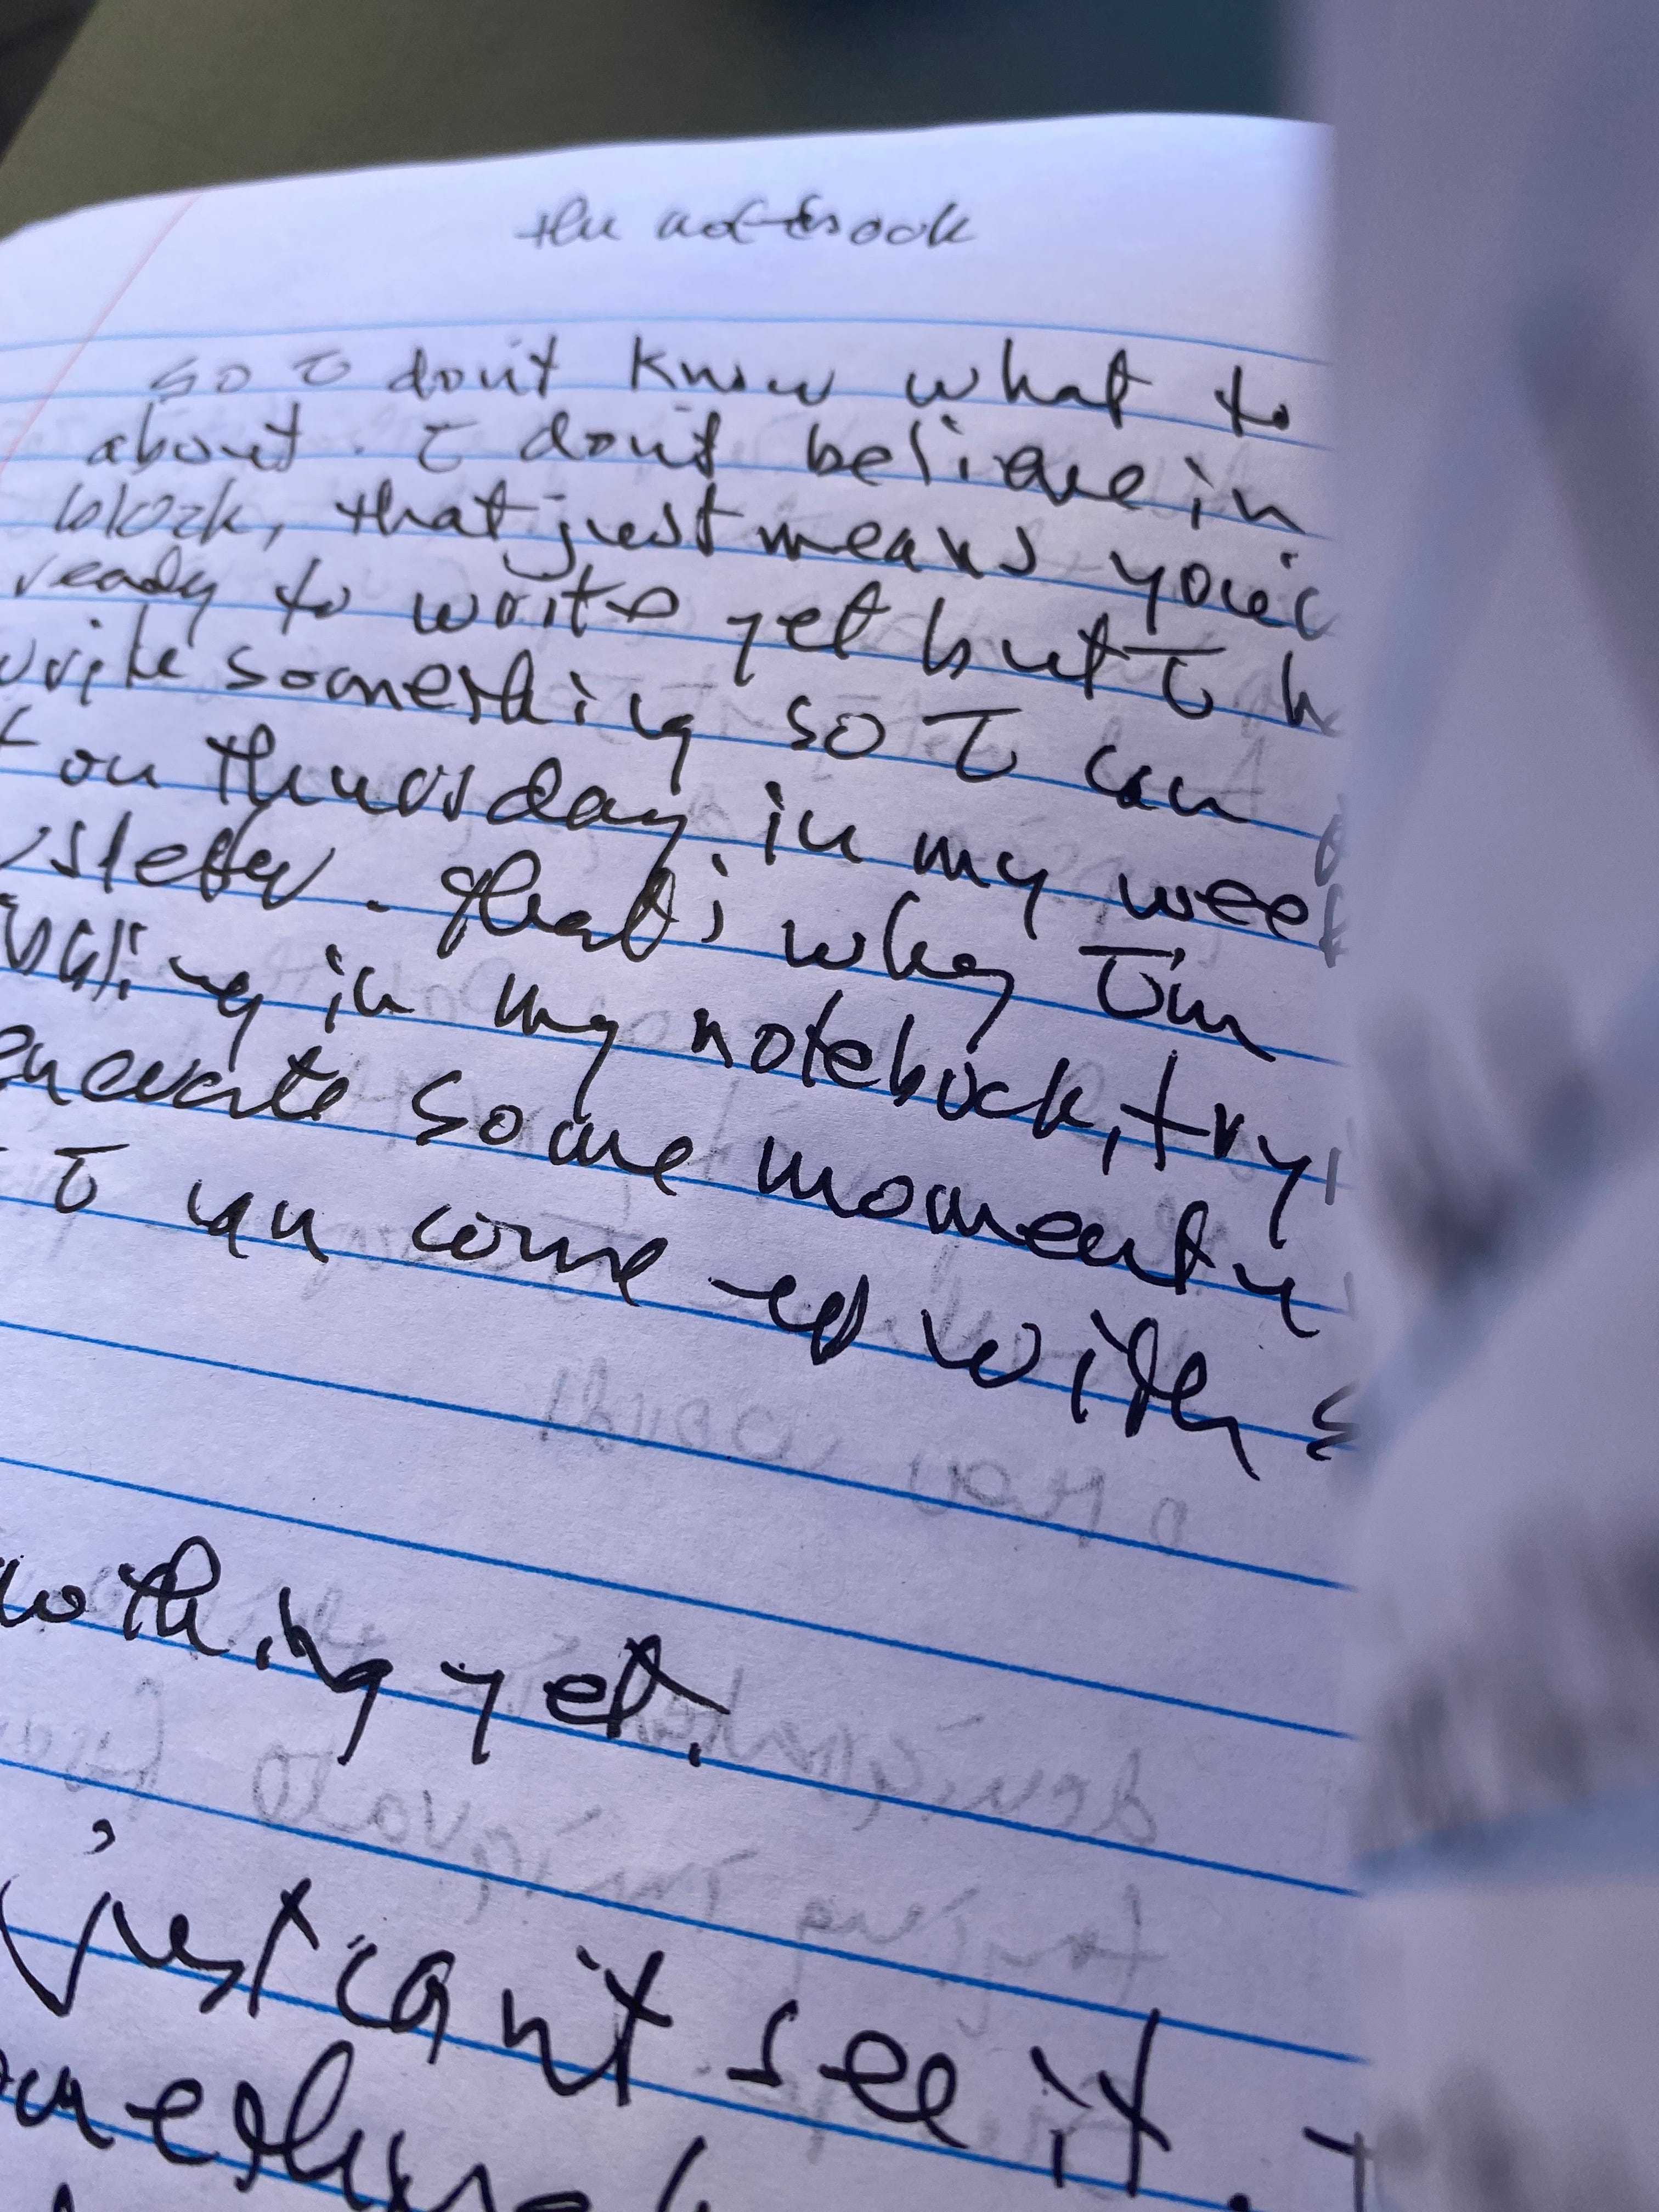 the notebook
so I don't know what to
about. I don't believe in
block, that just means you're
ready to write yet but I h
write something so I can
on thursday in my week
sletter. that's why I'm
bling in my notebook, tryi
enerate some momentu
I can come up with s
nothing yet.
just can't see it.